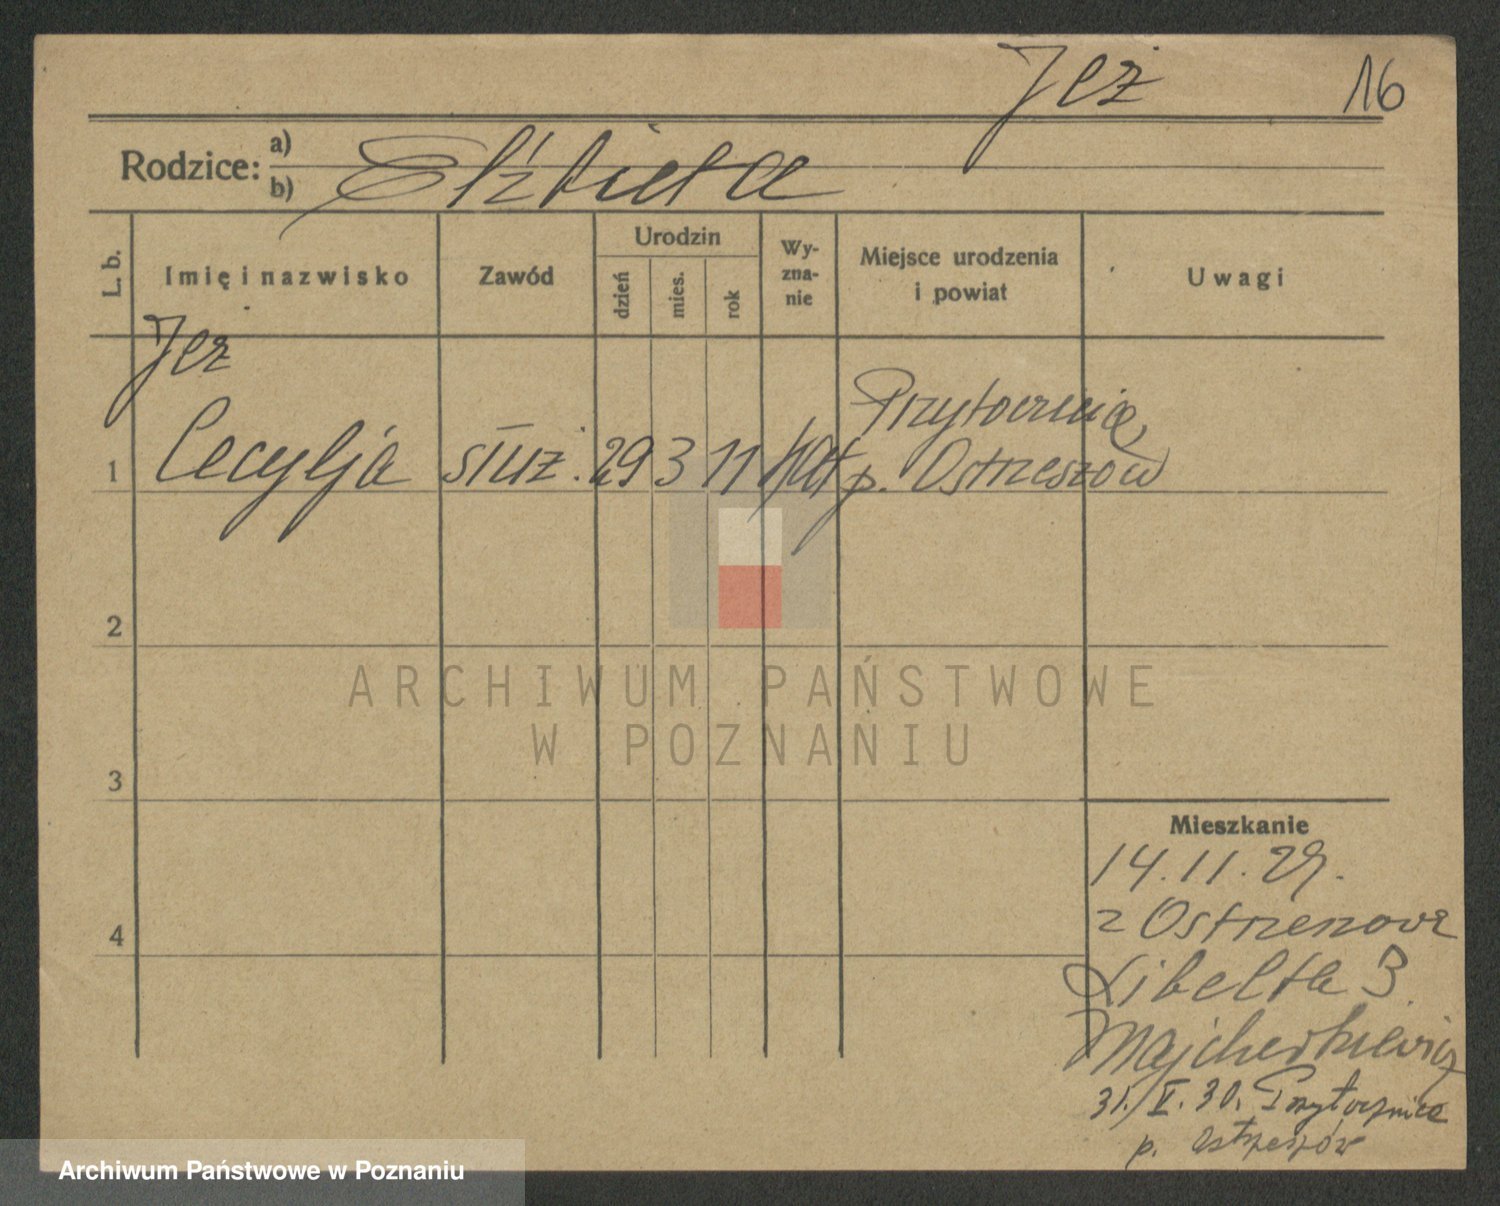 Jeż 16
Rodzice: a)
b) Elżbieta
L. b. Imię i nazwisko Zawód Urodzin dzień mies. rok Wy-zna-nie Miejsce urodzenia i powiat Uwagi
Jeż
Przytocznica
1 Cecylja służ. 29 3 11 kat p. Ostrzeszów
2
ARCHIWUM PAŃSTWOWE
W POZNANIU
3
Mieszkanie
14.11.29.
4 z Ostrzeszowa
Libelta 3
Majcherkiewicz
31. V. 30. Przytocznica
p. Ostrzeszów
Archiwum Państwowe w Poznaniu